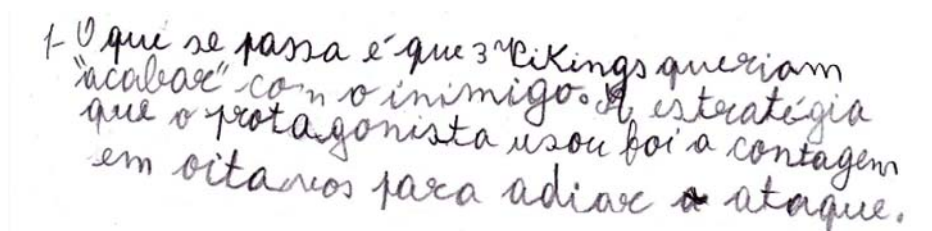 1- O que se passa é que 3 Vikings queriam
"acabar" com o inimigo. A estratégia
que o protagonista usou foi a contagem
em oitavos para adiar o ataque.